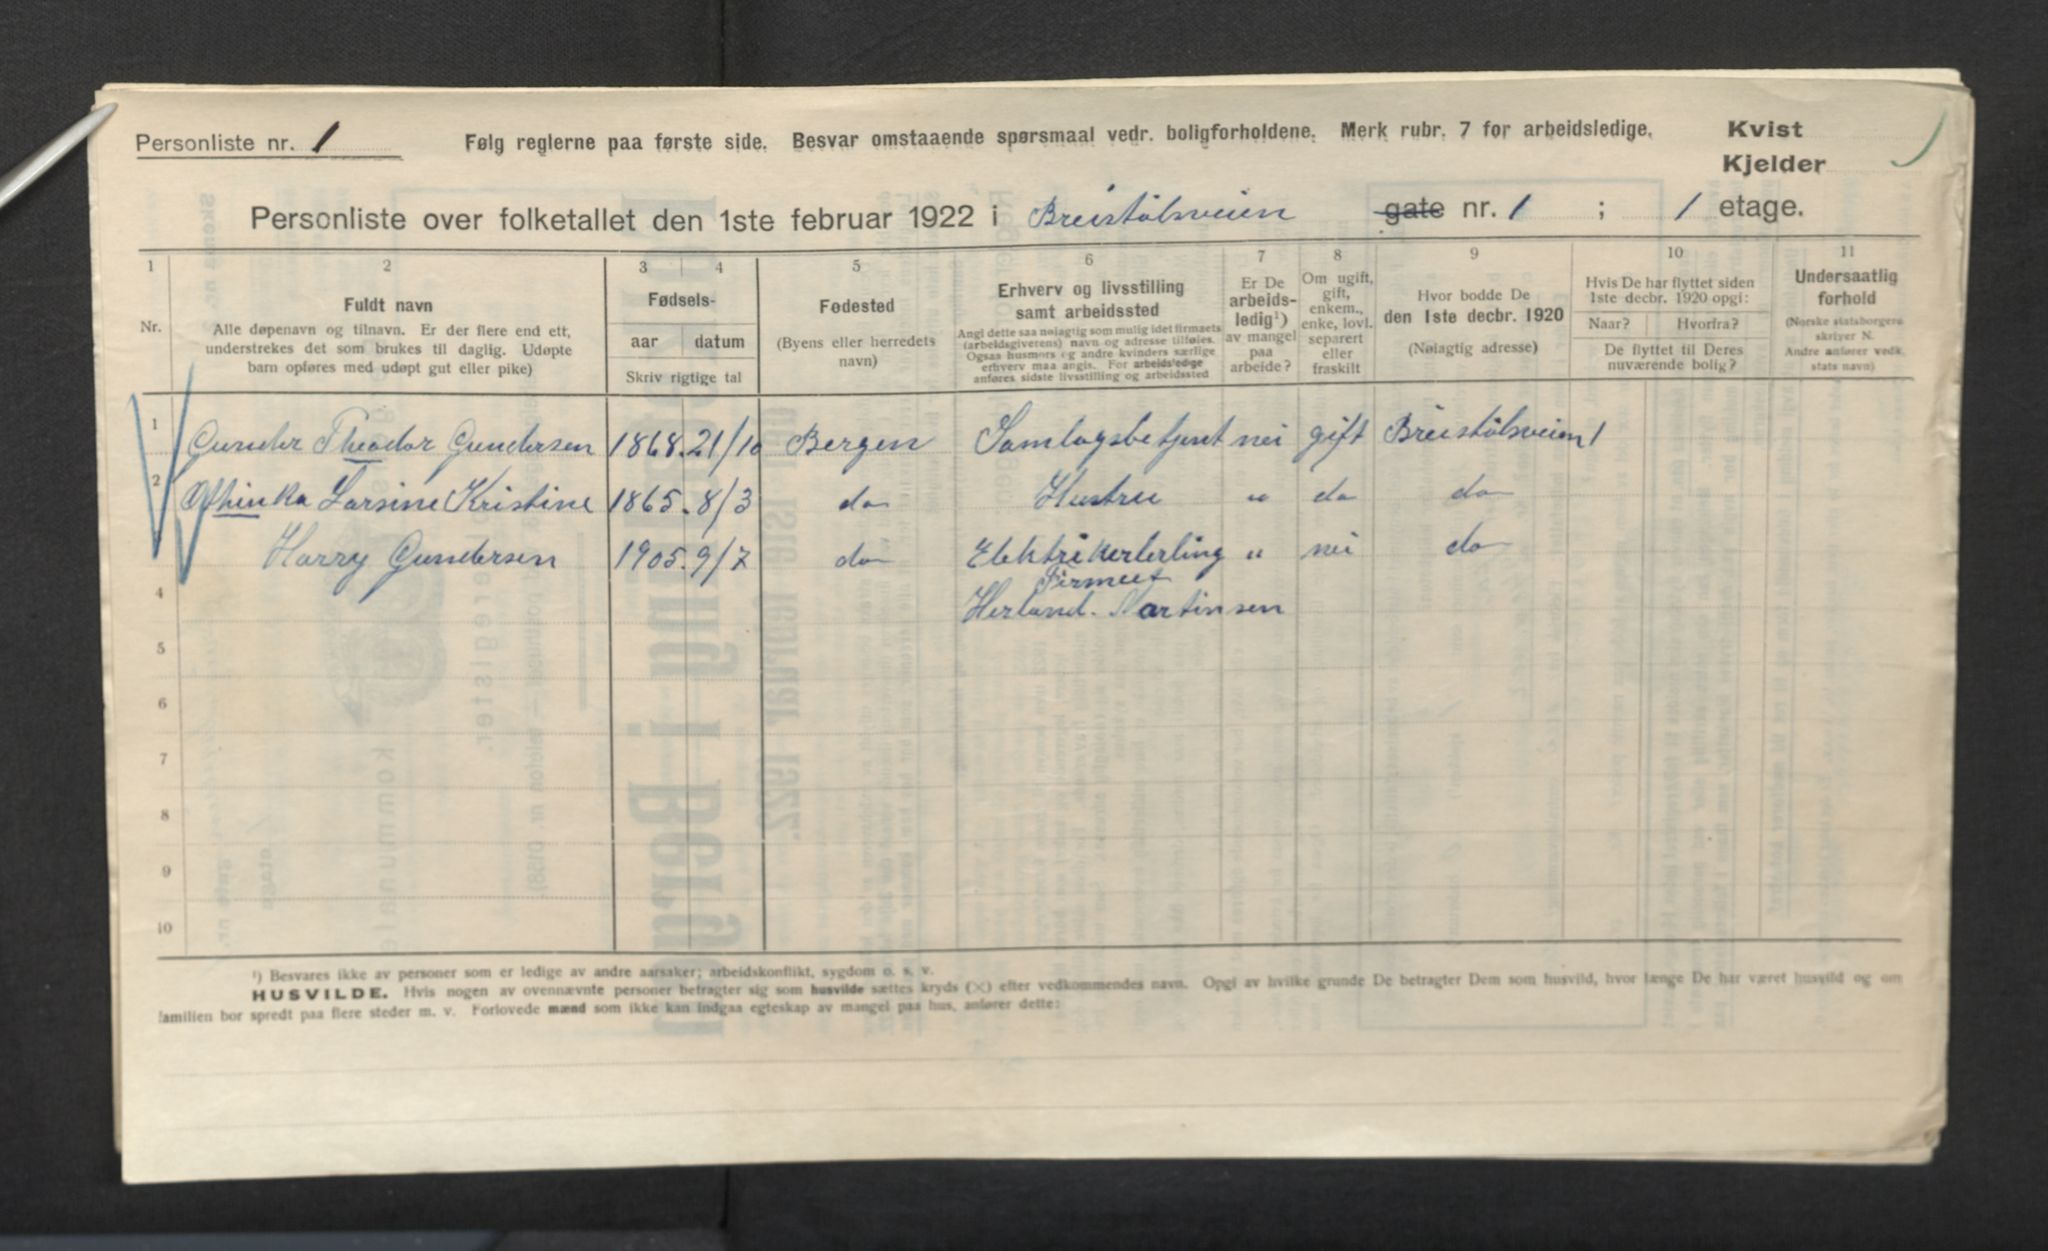 Personliste nr. 1
Følg reglerne paa første side. Besvar omstaaende spørsmaal vedr. boligforholdene. Merk rubr. 7 for arbeidsledige.
Kvist
Kjelder
Personliste over folketallet den 1ste februar 1922 i Breistølsveien gate nr. 1 ; 1 etage.
1 2 3 4 5 6 7 8 9 10 11
Nr.
Fuldt navn
Alle døpenavn og tilnavn. Er der flere end ett,
understrekes det som brukes til daglig. Udøpte
barn opføres med udøpt gut eller pike)
Fødsels-
aar datum
Skriv rigtige tal
Fødested
(Byens eller herredets
navn)
Erhverv og livsstilling
samt arbeidssted
Angi dette saa nøiagtig som mulig idet firmaets
(arbeidsgiverens) navn og adresse tilføies.
Ogsaa husmors og andre kvinders særlige
erhverv maa angis. For arbeidsledige
anføres sidste livsstilling og arbeidssted
Er De
arbeids-
ledig¹)
av mangel
paa
arbeide?
Om ugift,
gift,
enkem.,
enke, lovl.
separert
eller
fraskilt
Hvor bodde De
den 1ste decbr. 1920
(Nøiagtig adresse)
Hvis De har flyttet siden
1ste decbr. 1920 opgi:
Naar? Hvorfra?
De flyttet til Deres
nuværende bolig?
Undersaatlig
forhold
(Norske statsborgere
skriver N.
Andre anfører vedk.
stats navn)
1 Gunder Theodor Gundersen 1868. 21/10 Bergen Samlagsbetjent nei gift Breistølsveien 1
2 Larsine Kristine 1865. 8/3 do Hustru " do do
Harry Gundersen 1905. 9/7 do Elektrikerlerling " nei do
Firmaet
4 Herland. Martinsen
5
6
7
8
9
10
¹) Besvares ikke av personer som er ledige av andre aarsaker; arbeidskonflikt, sygdom o. s. v.
HUSVILDE. Hvis nogen av ovennævnte personer betragter sig som husvilde sættes kryds (×) efter vedkommendes navn. Opgi av hvilke grunde De betragter Dem som husvild, hvor længe De har været husvild og om
familien bor spredt paa flere steder m. v. Forlovede mænd som ikke kan indgaa egteskap av mangel paa hus, anfører dette: